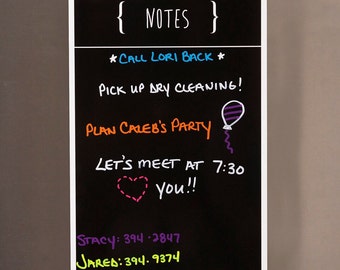 { NOTES }
* CALL LORI BACK *
PICK UP DRY CLEANING!
PLAN CALEB'S PARTY
LET'S MEET AT 7:30
YOU!!
STACY: 394-2847
JARED: 394.9374